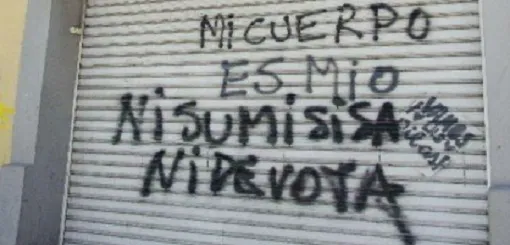 MI CUERPO
ES MIO
NI SUMISISA
NI DEVOTA